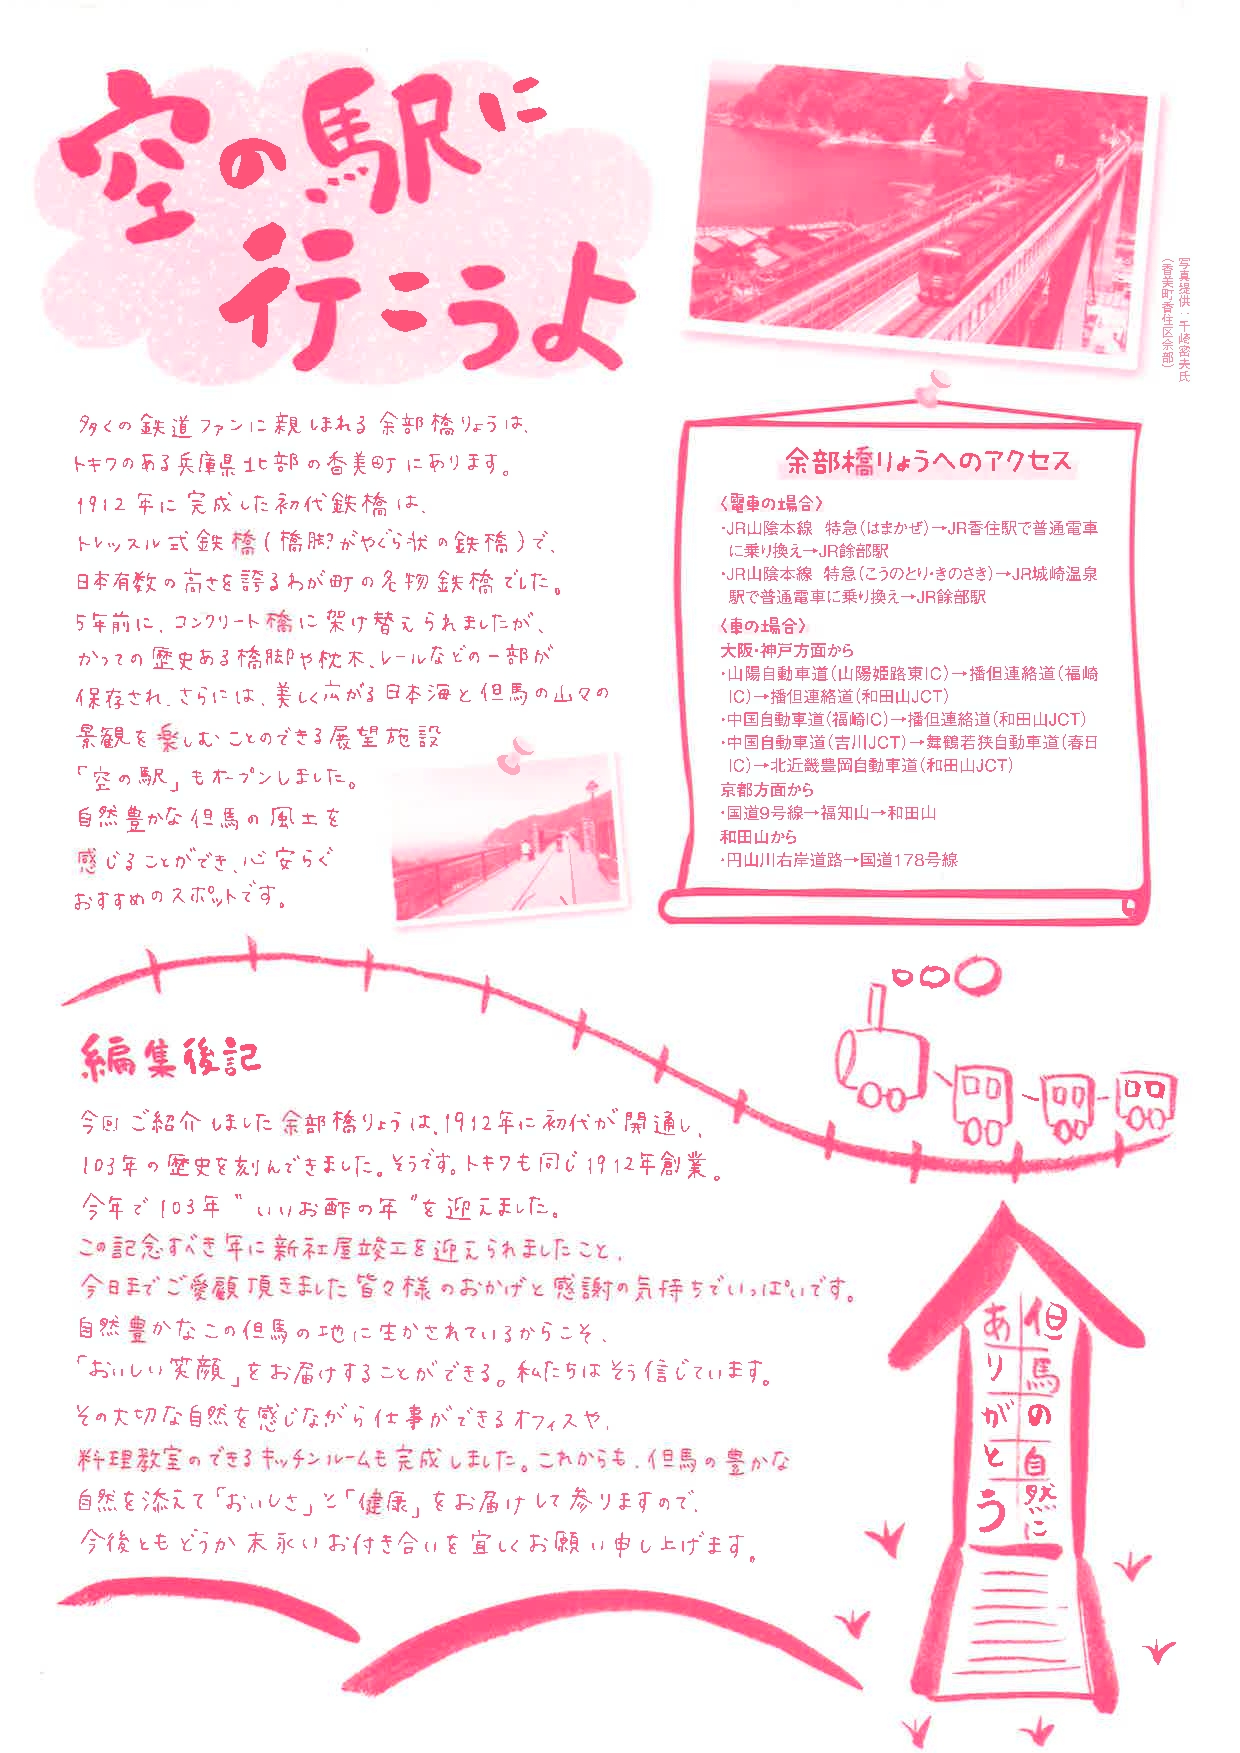 空の駅に
行こうよ
写真提供：千崎密夫氏
（香美町香住区余部）
多くの鉄道ファンに親しまれる余部橋りょうは、
トキワのある兵庫県北部の香美町にあります。
1912年に完成した初代鉄橋は、
トレッスル式鉄橋（橋脚がやぐら状の鉄橋）で、
日本有数の高さを誇るわが町の名物鉄橋でした。
5年前に、コンクリート橋に架け替えられましたが、
かつての歴史ある橋脚や枕木、レールなどの一部が
保存され、さらには、美しく広がる日本海と但馬の山々の
景観を楽しむことのできる展望施設
「空の駅」もオープンしました。
自然豊かな但馬の風土を
感じることができ、心安らぐ
おすすめのスポットです。
余部橋りょうへのアクセス
〈電車の場合〉
・JR山陰本線　特急（はまかぜ）→JR香住駅で普通電車
に乗り換え→JR餘部駅
・JR山陰本線　特急（こうのとり・きのさき）→JR城崎温泉
駅で普通電車に乗り換え→JR餘部駅
〈車の場合〉
大阪・神戸方面から
・山陽自動車道（山陽姫路東IC）→播但連絡道（福崎
IC）→播但連絡道（和田山JCT）
・中国自動車道（福崎IC）→播但連絡道（和田山JCT）
・中国自動車道（吉川JCT）→舞鶴若狭自動車道（春日
IC）→北近畿豊岡自動車道（和田山JCT）
京都方面から
・国道9号線→福知山→和田山
和田山から
・円山川右岸道路→国道178号線
編集後記
今回ご紹介しました余部橋りょうは、1912年に初代が開通し、
103年の歴史を刻んできました。そうです。トキワも同じ1912年創業。
今年で103年“いいお酢の年”を迎えました。
この記念すべき年に新社屋竣工を迎えられましたこと、
今日までご愛顧頂きました皆々様のおかげと感謝の気持ちでいっぱいです。
自然豊かなこの但馬の地に生かされているからこそ、
「おいしい笑顔」をお届けすることができる。私たちはそう信じています。
その大切な自然を感じながら仕事ができるオフィスや、
料理教室のできるキッチンルームも完成しました。これからも、但馬の豊かな
自然を添えて「おいしさ」と「健康」をお届けして参りますので、
今後ともどうか末永いお付き合いを宜しくお願い申し上げます。
但馬の自然に
ありがとう